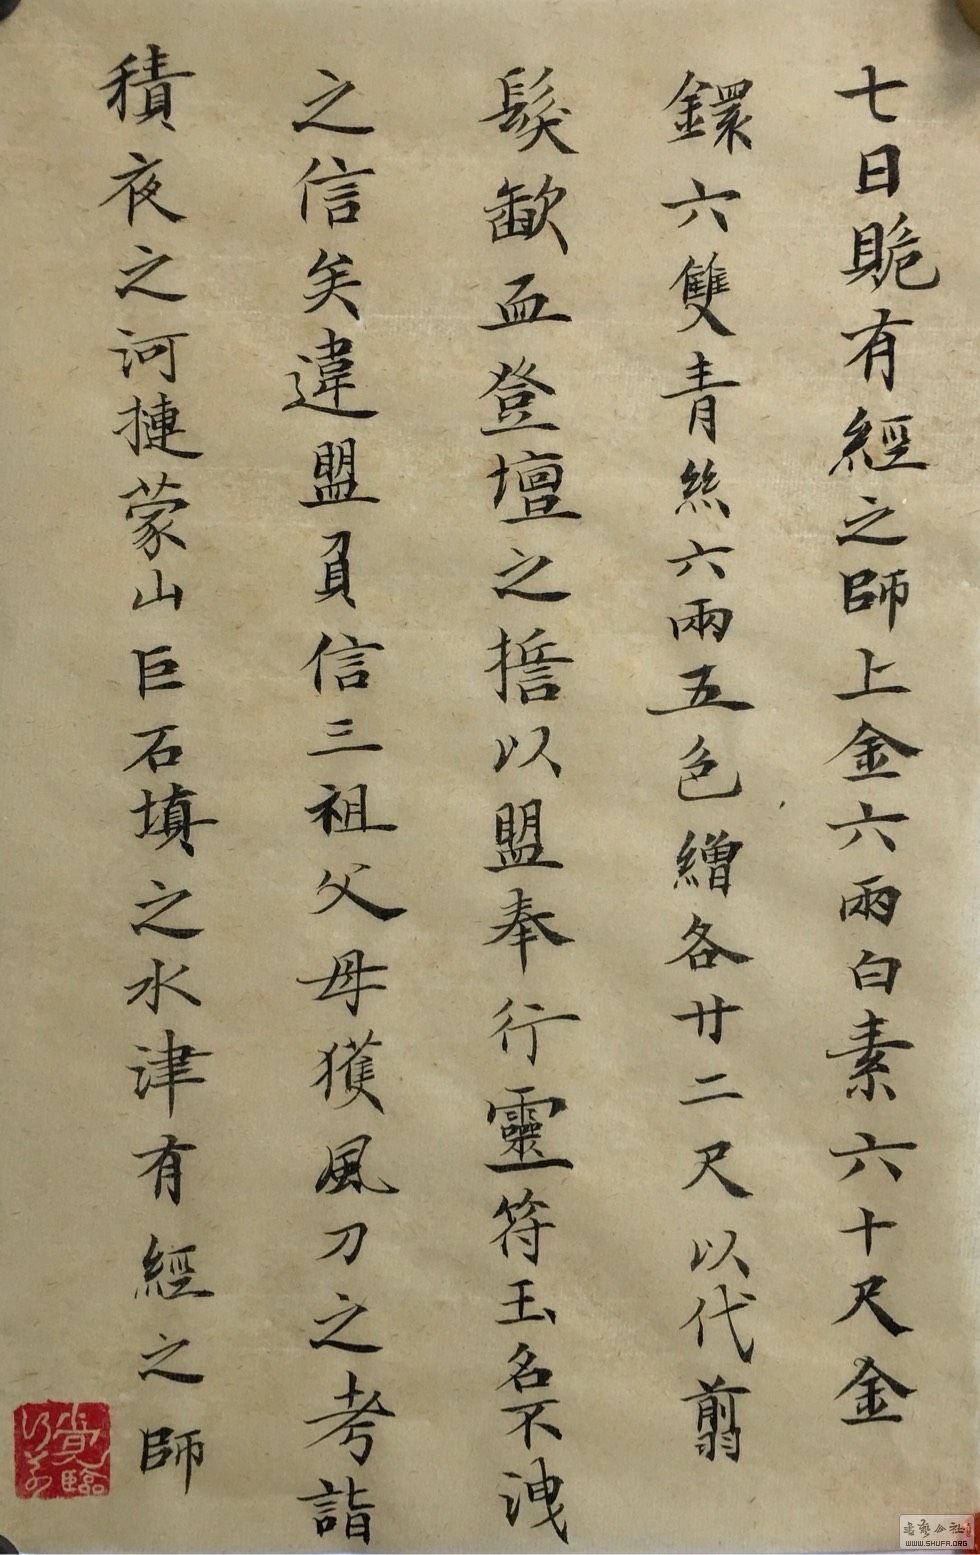 七日䞈有經之師上金六兩白素六十尺金
鐶六雙青絲六兩五色繒各廿二尺以代翦
髮歃血登壇之誓以盟奉行靈符玉名不洩
之信矣違盟負信三祖父母獲風刀之考詣
積夜之河摙蒙山巨石填之水津有經之師
書藝公社
WWW.SHUFA.ORG